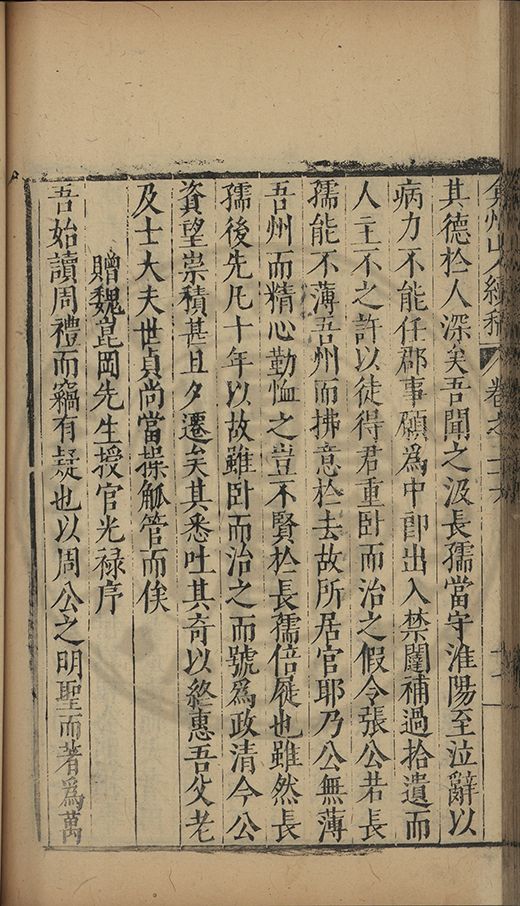 弇州山人續稿 卷之二十六
其德於人深矣吾聞之汲長孺當守淮陽至泣辭以
病力不能任郡事願爲中郎出入禁闥補過拾遺而
人主不之許以徒得君重臥而治之假令張公若長
孺能不薄吾州而拂意於去故所居官耶乃公無薄
吾州而精心勤恤之豈不賢於長孺倍屣也雖然長
孺後先凡十年以故雖臥而治之而號爲政清今公
資望崇積甚且夕遷矣其悉吐其奇以終惠吾父老
及士大夫世貞尚當操觚管而俟
贈魏崑岡先生授官光禄序
吾始讀周禮而竊有疑也以周公之明聖而著爲萬